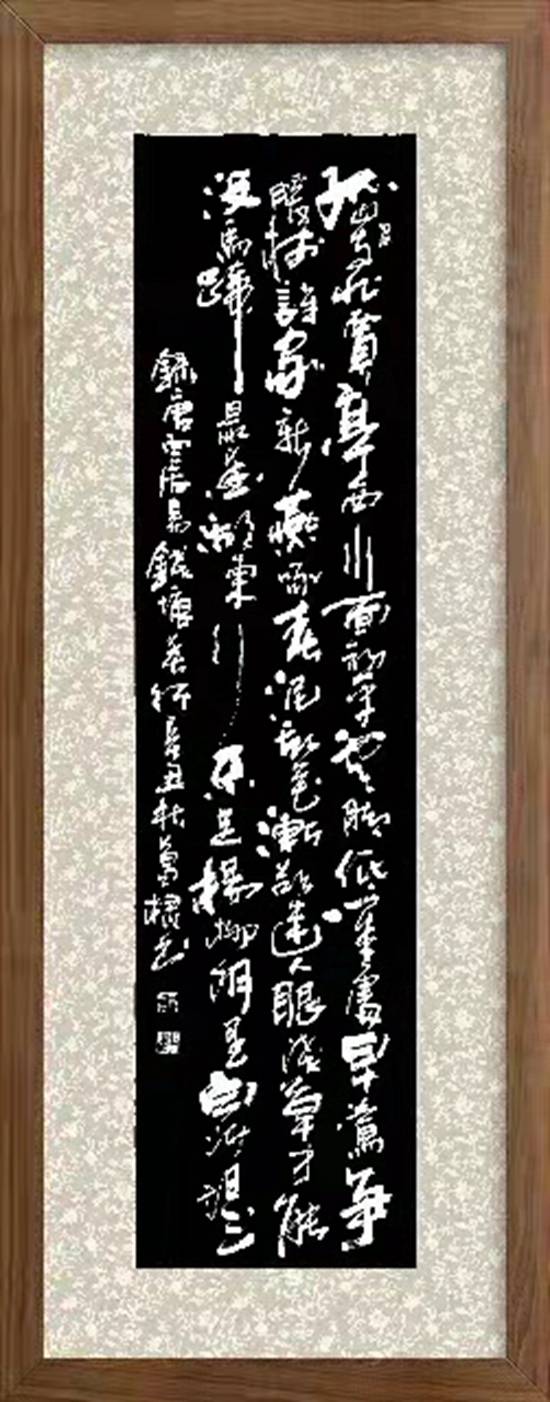 孤山寺北賈亭西水面初平雲脚低幾處早鶯爭
暖樹誰家新燕啄春泥亂花漸欲迷人眼淺草才能
没馬蹄最愛湖東行不足楊柳陰里白沙堤
錄唐白居易錢塘春行辛丑秋書